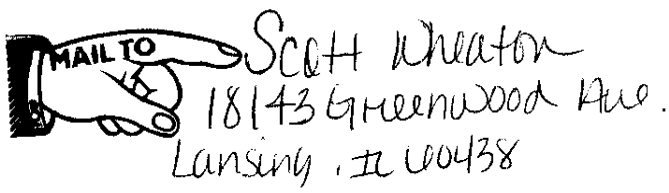 MAIL TO
Scott Wheaton
18143 Greenwood Ave.
Lansing, IL 60438